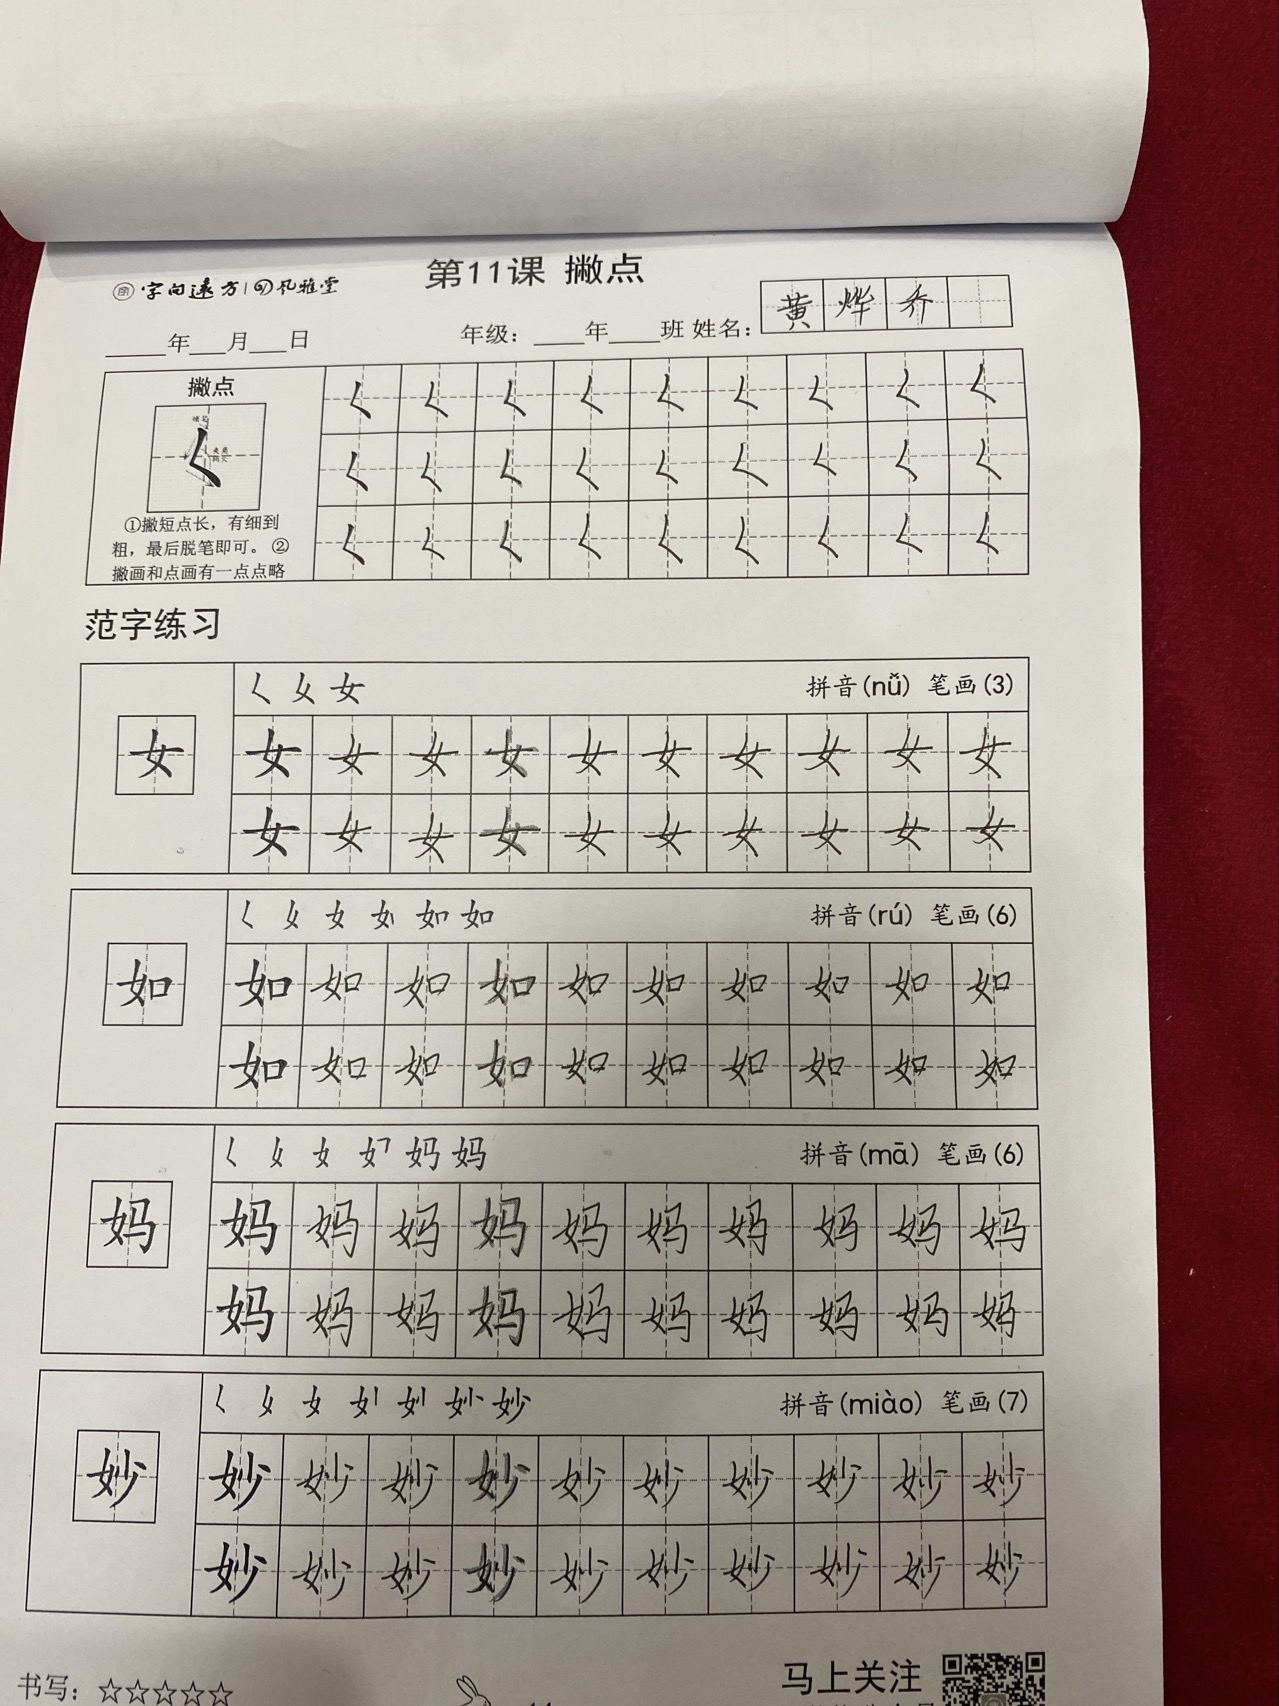 字向远方 | 风雅堂
第11课 撇点
____年___月___日
年级：____年____班 姓名： 黄烨乔
撇点
①撇短点长，有细到
粗，最后脱笔即可。②
撇画和点画有一点点略
范字练习
女 拼音(nǚ) 笔画(3)
女 女 女 女 女 女 女 女 女 女 女
女 女 女 女 女 女 女 女 女 女
如 拼音(rú) 笔画(6)
如 如 如 如 如 如 如 如 如 如 如
如 如 如 如 如 如 如 如 如 如
妈 拼音(mā) 笔画(6)
妈 妈 妈 妈 妈 妈 妈 妈 妈 妈 妈
妈 妈 妈 妈 妈 妈 妈 妈 妈 妈
妙 拼音(miào) 笔画(7)
妙 妙 妙 妙 妙 妙 妙 妙 妙 妙 妙
妙 妙 妙 妙 妙 妙 妙 妙 妙 妙
书写：☆☆☆☆☆
马上关注